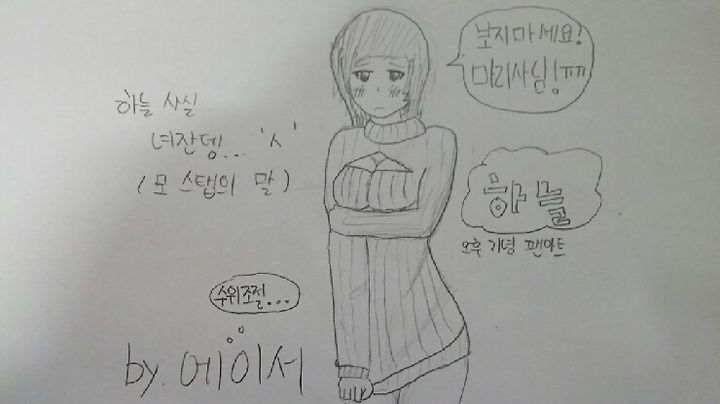 보지마세요!
마리사님!ㅠㅠ
하늘 사실
녀잔뎅... 'ㅅ'
(모 스탭의 말)
하늘
오후 기념 팬아트
수위조절...
by. 에이서